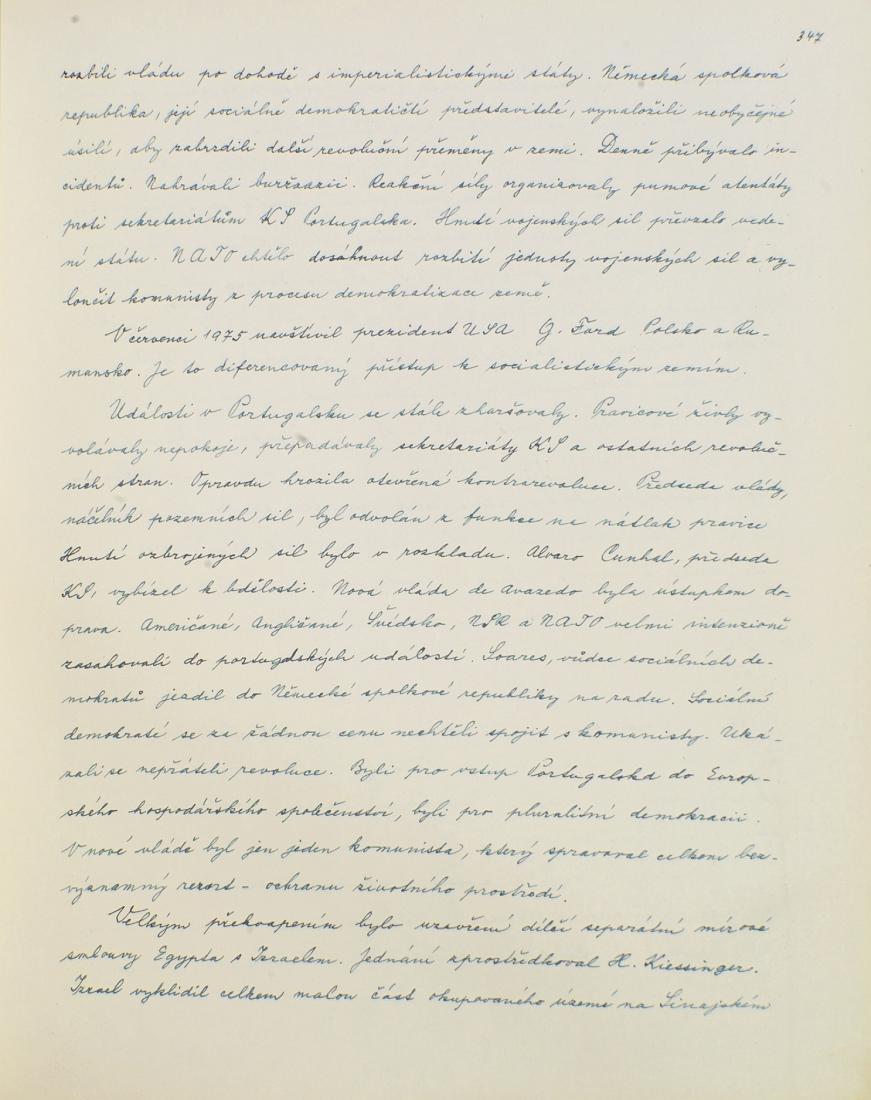 347
rozbili vládu po dohodě s imperialistickými státy. Německá spolková
republika, její sociálně demokratičtí představitelé, vynaložili neobyčejné
úsilí, aby zabrzdili další revoluční přeměny v zemi. Denně přibývalo in-
cidentů. Nahrávali buržoazii. Reakční síly organizovaly pumové atentáty
proti sekretariátům KS Portugalska. Hnutí vojenských sil převzalo vede-
ní státu. NATO chtělo dosáhnout rozbití jednoty vojenských sil a vy-
loučit komunisty z procesu demokratizace země.
V červenci 1975 navštívil prezident USA G. Ford Polsko a Ru-
munsko. Je to diferencovaný přístup k socialistickým zemím.
Události v Portugalsku se stále zhoršovaly. Pravicové živly vy-
volávaly nepokoje, přepadávaly sekretariáty KS a ostatních revoluč-
ních stran. Opravdu hrozila otevřená kontrarevoluce. Předseda vlády,
náčelník pozemních sil, byl odvolán z funkce na nátlak pravice
Hnutí ozbrojených sil bylo v rozkladu. Alvaro Cunhal, předseda
KS, vybízel k bdělosti. Nová vláda de Avazedo byla ústupkem do-
prava. Američané, Angličané, Švédsko, NSR a NATO velmi intenzivně
zasahovali do portugalských událostí. Soares, vůdce sociálních de-
mokratů jezdil do Německé spolkové republiky na radu. Sociální
demokraté se za žádnou cenu nechtěli spojit s komunisty. Uká-
zali se nepřáteli revoluce. Byli pro vstup Portugalska do Evrop-
ského hospodářského společenství, byli pro pluralitní demokracii.
V nové vládě byl jen jeden komunista, který spravoval celkem bez-
významný rezort - ochranu životního prostředí.
Velkým překvapením bylo uzavření dílčí separátní mírové
smlouvy Egypta s Izraelem. Jednání zprostředkoval H. Kiessinger.
Izrael vyklidil celkem malou část okupovaného území na Sinajském